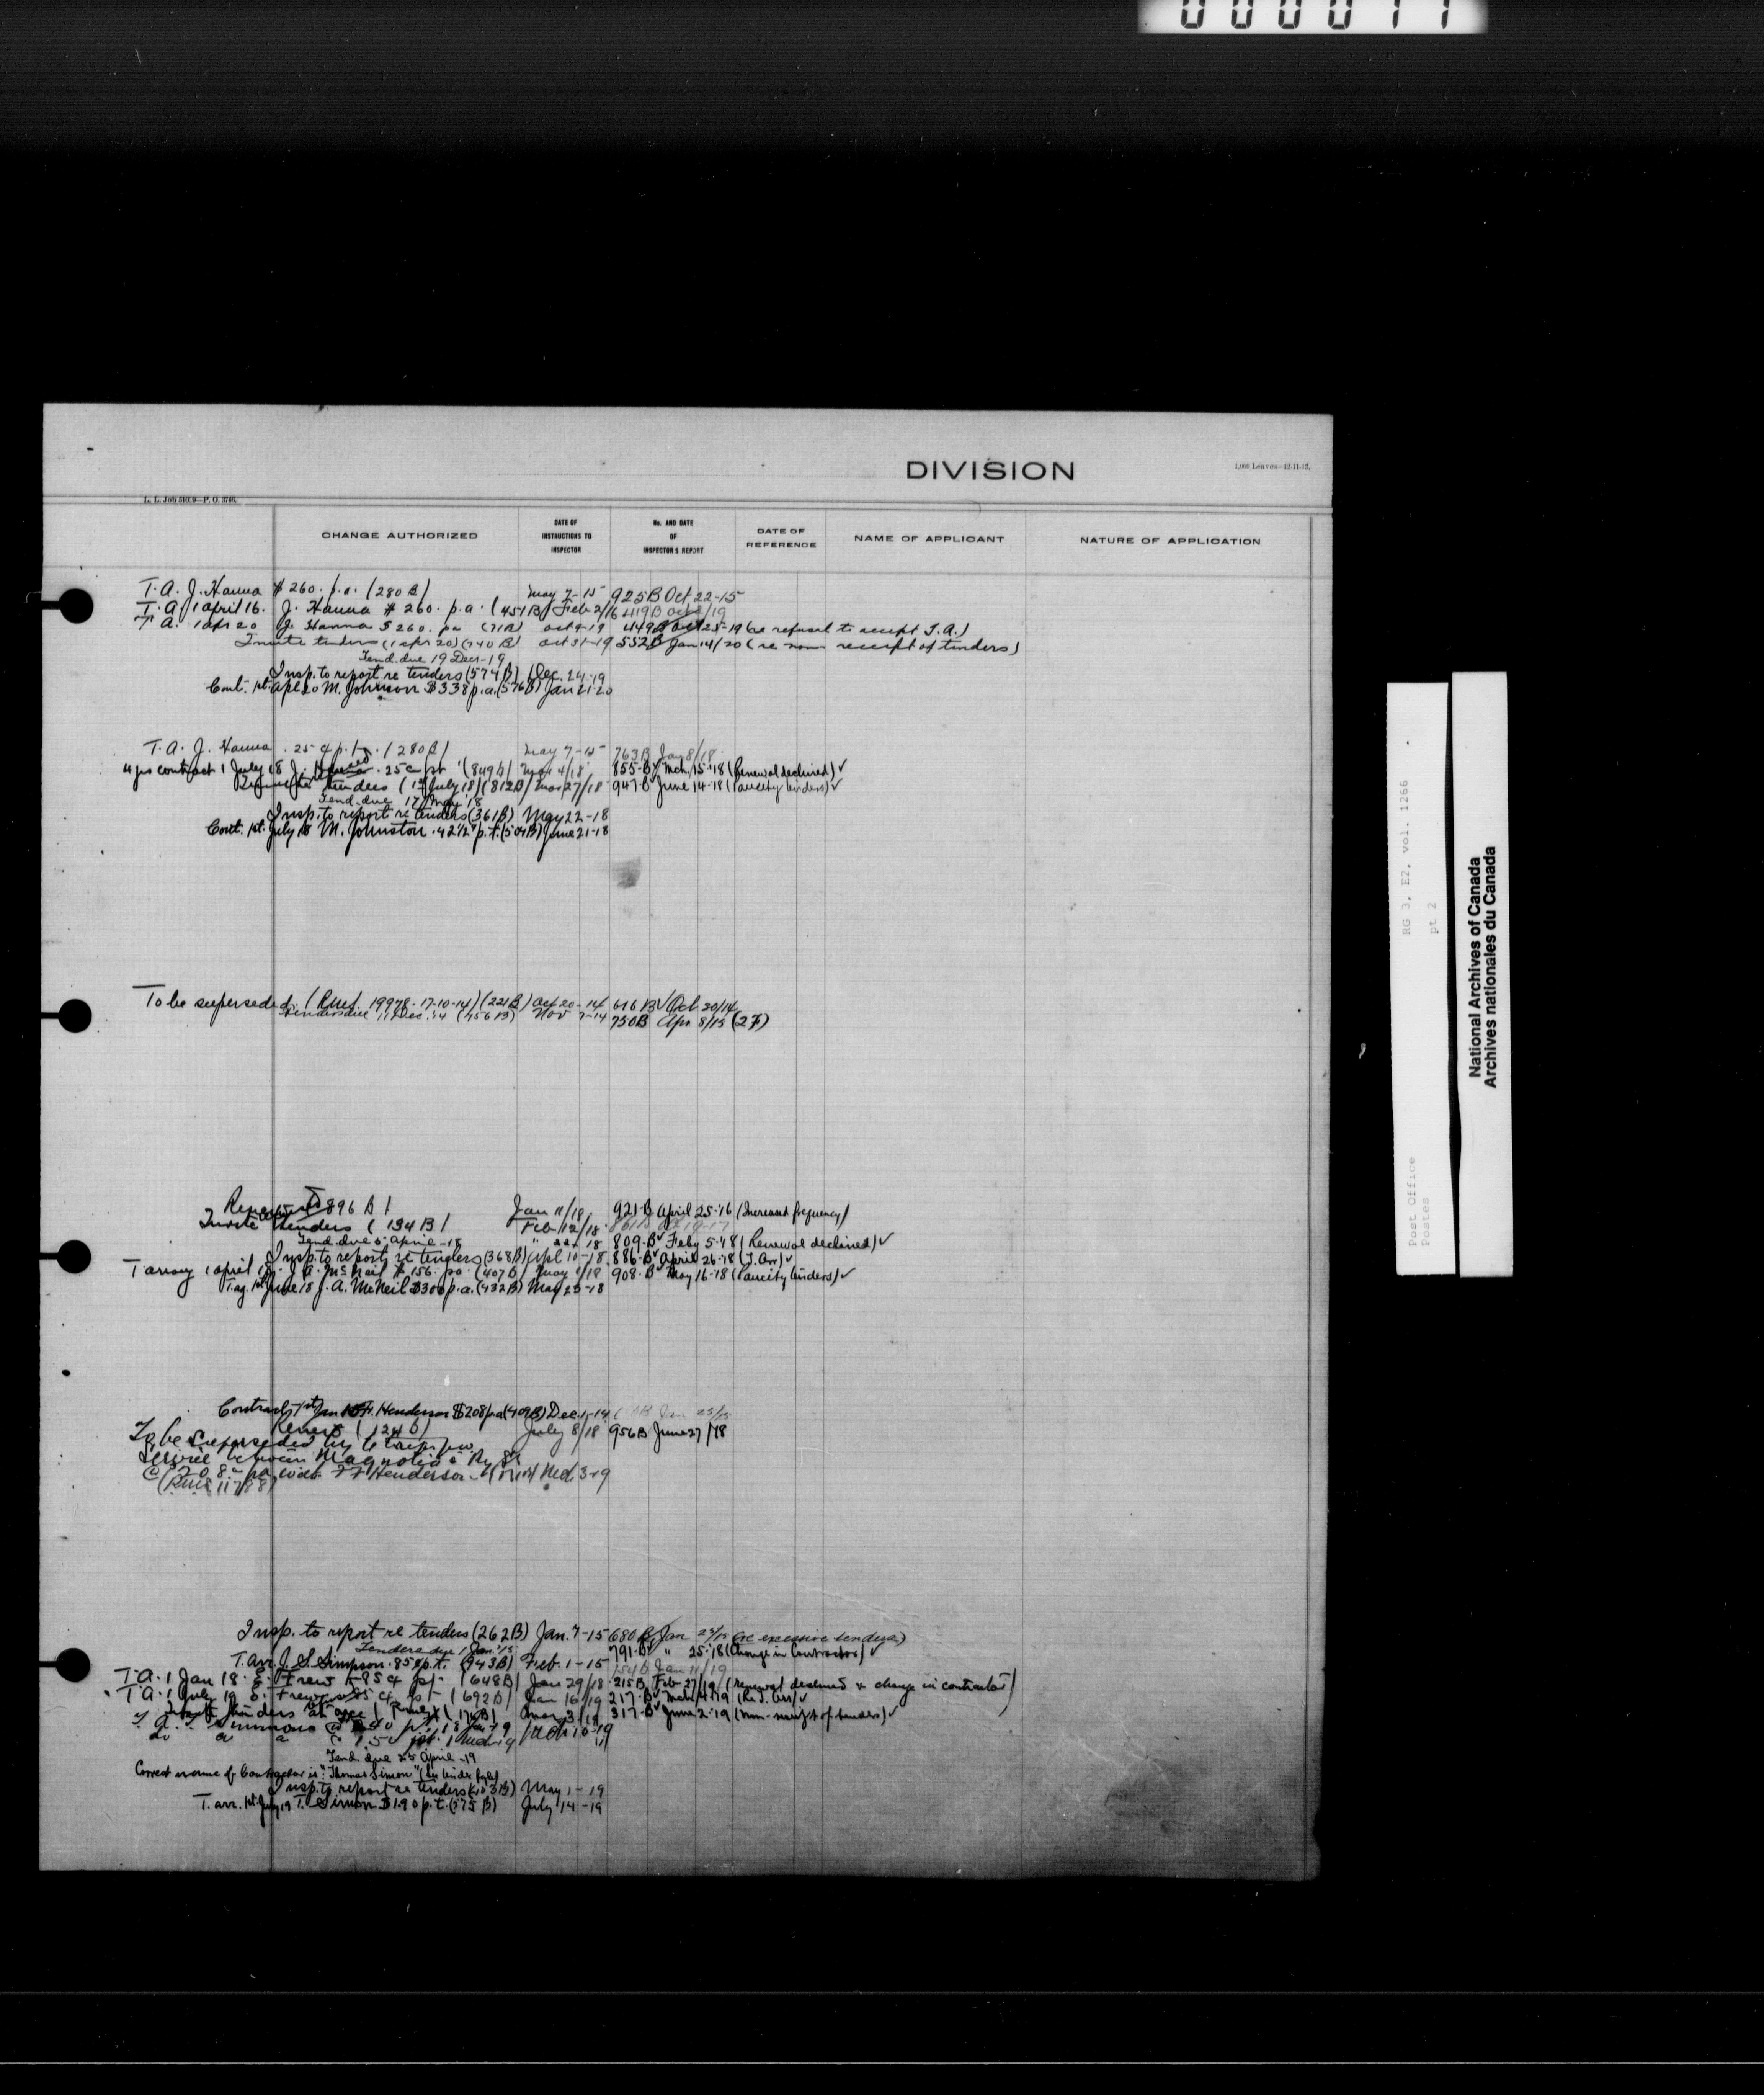 000011
DIVISION
1,000 Leaves—12-11-12.
L. L. Job 510.9—P. O. 3746.
CHANGE AUTHORIZED
DATE OF INSTRUCTIONS TO INSPECTOR
No. AND DATE OF INSPECTOR'S REPORT
DATE OF REFERENCE
NAME OF APPLICANT
NATURE OF APPLICATION
T. A. J. Hanna $260. p.a. (280 B) May 7-15 925B Oct 22-15
T. A. 1 April 16. J. Hanna $260. p.a. (451B) Feb 2/16 419B Oct 2/19
T A. 1 apr 20 J. Hanna $260. pa (71B) Oct 9-19 449B Oct 25-19 (re refusal to accept T.A.)
Invite tenders (1 apr 20) (740 B) Oct 31-19 552B Jan 14/20 (re non receipt of tenders)
Tend. due 19 Decr-19
Insp. to report re tenders (574B) Dec. 24-19
Cont. 1st. Apl 20 M. Johnson $338 p.a. (576B) Jan 21-20
T. A. J. Hanna . 25 ¢ p.t. (280B) May 7-15 763B Jan 8/18
4 yrs contract 1 July 18 J. Hanna . 25c pr (849B) Mar 4/18 855-B Mch 15-18 (Renewal declined) ✓
tenders (1st July 18) (812B) Mar 27/18 947-B June 14-18 (Paucity tenders) ✓
Tend. due 17 May '18
Insp. to report re tenders (361B) May 22-18
Cont. 1st. July 18 M. Johnston .42½ p.t. (504B) June 21-18
To be superseded. (Rms. 19978-17-10-14) (221B) Oct 20-14 616 B ✓ Oct 20/14
Tenders due 11 Dec. 14 (756B) Nov 7-14 750B Apr 8/15 (27)
896 B) Jan 11/18. 921-B April 25-16 (Increased frequency)
Invite tenders (134B) Feb 12/18
Tend. due 5 April-18 " 22-18 809-B ✓ Feby 5-18 (Renewal declined) ✓
Insp. to report re tenders (368B) Apl 10-18 886-B ✓ April 26-18 (T. Arr) ✓
T arrang 1 april 18. J. A. McNeil $156. pa. (407B) May 1/18 908-B ✓ May 16-18 (Paucity tenders) ✓
T. ag. 1st June 18 J. A. McNeil $300 p.a. (432B) May 25-18
Contract 1st Jan Henderson $208 pa (409B) Dec. 1-14 Jan 25/15
Renew (124B) July 8/18 956B June 27/18
To be superseded by
Service between Magnolia & Ry St
@ 208 pa with Henderson Mch. 3-19
(Rms 11788)
Insp. to report re tenders (262B) Jan. 7-15 680B Jan 25/15 (re excessive tenders)
Tenders due 1 Jan. '15. 791-B ✓ " 25-18 (Change in Contractor) ✓
T. arr. J. S. Simpson .85 p.t. (943B) Feb. 1-15 154B Jan 14/19
T. A. 1 Jan 18. E. Frew .85 ¢ pt. (648B) Jan 29/18 215B Feb 27/19 (renewal declined & change in contractor)
T A. 1 July 19 E. Frew .85 ¢ pt (692B) Jan 16/19 217-B ✓ Mch 4-19 (Re T. Arr) ✓
Invite tenders at once (174B) Mar 3/19 317-B ✓ June 2-19 (non-receipt of tenders) ✓
Mch 10-19
Tend. due 25 April-19
Correct name of Contractor is "Thomas Simon" (See tender file)
Insp. to report re tenders (103B) May 1-19
T. arr. 1st July 19 T. Simon $1.90 p.t. (575B) July 14-19
RG 3, E2, vol. 1266
pt 2
Post Office
Postes
National Archives of Canada
Archives nationales du Canada